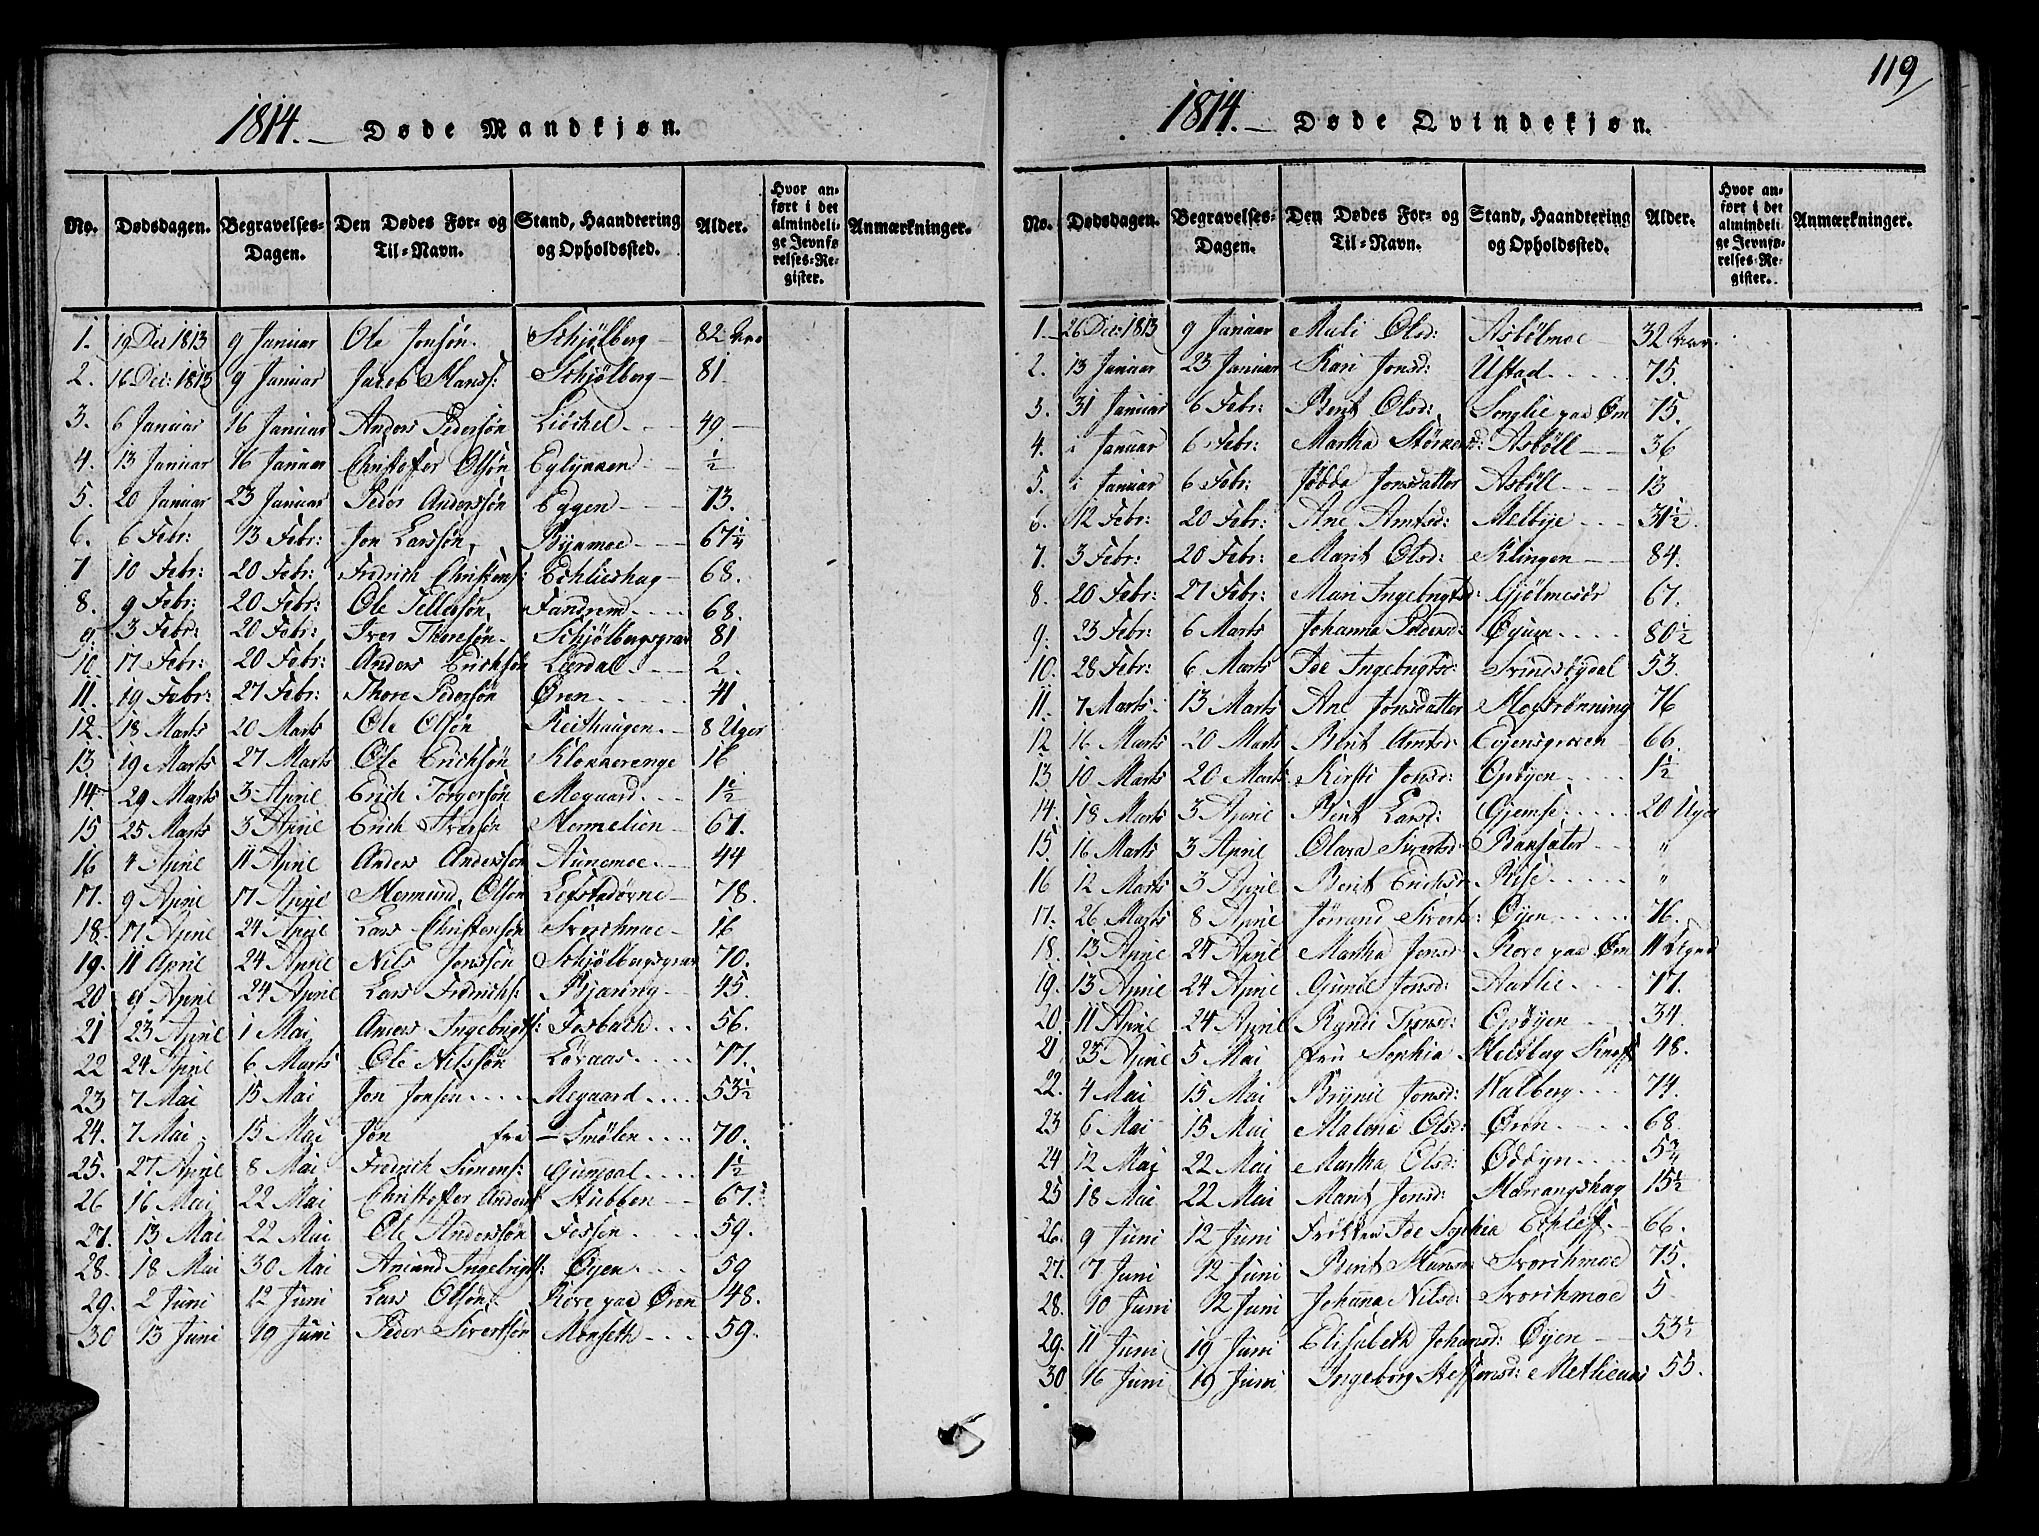 119
1814. Døde Mandkjøn.
No. Dødsdagen. Begravelses-Dagen. Den Dødes For- og Til-Navn. Stand, Haandtering og Opholdssted. Alder. Hvor anført i det almindelige Jevnførelses-Register. Anmærkninger.
1. 19 Dec 1813 9 Januar Ole Jonsøn. Schjølberg 82
2. 16 Dec: 1813 9 Januar Jacob Hanss: Schjølberg 81
3. 6 Januar 16 Januar Anders Pedersøn 49
4. 13 Januar 16 Januar Christofer Olsøn Eglykken ½
5. 20 Januar 23 Januar Peder Anderssøn Eggen 73.
6. 6 Febr: 13 Febr: Jon Larssøn Bynmoe 67¼
7 10 Febr: 20 Febr: Fredrich Christens: Echlieshag 68.
8. 9 Febr: 20 Febr: Ole Tellefsøn Fandrem 68.
9. 3 Febr: 20 Febr: Iver Thomsøn. Schjølbergsgrav 81
10. 17 Febr: 20 Febr: Anders Erichsøn Lerdal 2.
11. 19 Febr: 27 Febr: Thore Pedersøn Øren 41
12. 18 Marts 20 Marts Ole Olsøn Reithaugen 8 Uger
13 19 Marts 27 Marts Ole Erichsøn Klokkerenge 16
14 29 Marts 3 April Erich Torgersøn Megaard 1½
15 25 Marts 3 April Erich Iversøn 67.
16 4 April 11 April Anders Anderssøn Aunemoe 44
17. 9 April 17 April Olsøn 78.
18. 17 April 24 April Lars Christensøn Svorchmoe 16
19. 11 April 24 April Nils Jonssøn Schjølbergsgrav 70.
20 9 April 24 April Lars Fredrichs: Bjøring 45.
21 23 April 1 Mai Anders Ingebrigts: Fosbach 56.
22 24 April 6 Marts Ole Nilssøn Loraas 77.
23 7 Mai 15 Mai Jon Jonsøn Megaard 53½
24. 7 Mai 15 Mai Jon fri Smølen 70.
25. 27 April 8 Mai Fredrich Simens: Gumdal 1½
26 16 Mai 22 Mai Christofer Anders Stubben 67.
27. 13 Mai 22 Mai Ole Anderssøn Fossen 59.
28. 18 Mai 30 Mai Amund Ingebrigts: Øyen 59
29. 2 Juni 12 Juni Lars Olsøn Rove paa Øren 48.
30 13 Juni 19 Juni Peder Sivertsøn Monseth 59.
1814. Døde Qvindekjøn.
No. Dødsdagen. Begravelses-Dagen. Den Dødes For- og Til-Navn. Stand, Haandtering og Opholdssted. Alder. Hvor anført i det almindelige Jevnførelses-Register. Anmærkninger.
1. 26 Dec: 1813 9 Januar Mali Olsd: Asbølmoe 32
2. 13 Januar 23 Januar Kari Jonsd: Ustad 75.
3. 31 Januar 6 Febr: Berit Olsd: Songlie paa Øren 75.
4. i Januar 6 Febr: Martha Asbøll 36
5. i Januar 6 Febr: Jødda Jonsdatter Asbøll 13
6. 12 Febr: 20 Febr: Ane Arntsd: Melbye 31½.
7. 3 Febr: 20 Febr: Marit Olsd: Klingen 84.
8. 20 Febr: 27 Febr: Mari Ingebrigtsd: Gjølmesør 67.
9. 23 Febr: 6 Marts Johanna Pedersd: Øyum 80½
10. 28 Febr: 6 Marts Ide Ingebrigtsd: Svindsbydal 53.
11. 7 Marts 13 Marts Ane Jonsdatter Mostrønning 76
12 16 Marts 20 Marts Berit Arntsd: Evjensgroven 66.
13 10 Marts 20 Marts Kirsti Jonsd: Opøyen 1½
14. 18 Marts 3 April Berit Larsd: Gjemse 20 Uger
15. 16 Marts 3 April Olava Sivertsd: Bansæter "
16 12 Marts 3 April Berit Erichsd: Rise "
17. 26 Marts 8 April Jørrand Siverts: Øyen 76.
18. 13 April 24 April Martha Jonsd Rove paa Øren 11
19. 13 April 24 April Gunil Jonsd: Aarlie 77.
20 11 April 24 April Ryndi Jonsd: Opøyen 34.
21 23 April 5 Mai fru Sophia 48.
22. 4 Mai 15 Mai Brynil Jonsd: Walberg 74.
23 6 Mai 15 Mai Maleni Olsd: Øren 68.
24 12 Mai 22 Mai Martha Olsd: Ødbyn 5¾
25 18 Mai 22 Mai Marit Jonsd: 15½
26. 9 Juni 12 Juni Frøken Ide Sophia Echleff 66.
27. 7 Juni 12 Juni Berit Hansd: Svorchmoe 75.
28. 10 Juni 12 Juni Johanna Nilsd: Svorchmoe 5
29. 11 Juni 19 Juni Elisabeth Johansd: Øyen 53½
30 16 Juni 19 Juni Ingeborg Steffensd: Metlieaas 55.